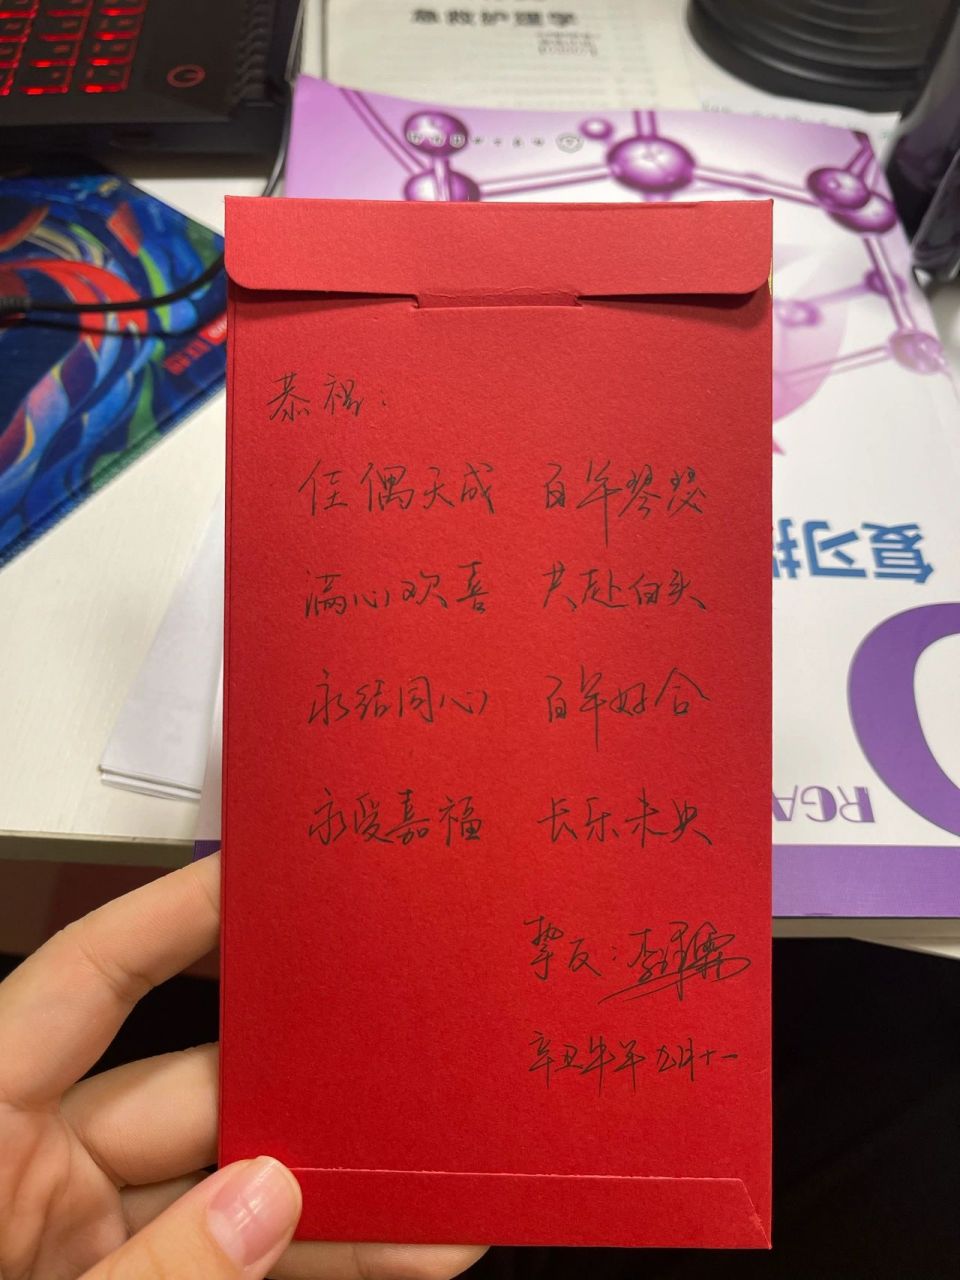 急救护理学
恭祝：
佳偶天成 百年琴瑟
满心欢喜 共赴白头
永结同心 百年好合
永受嘉福 长乐未央
挚友：李
辛丑牛年 九月十一
复习指
RGA